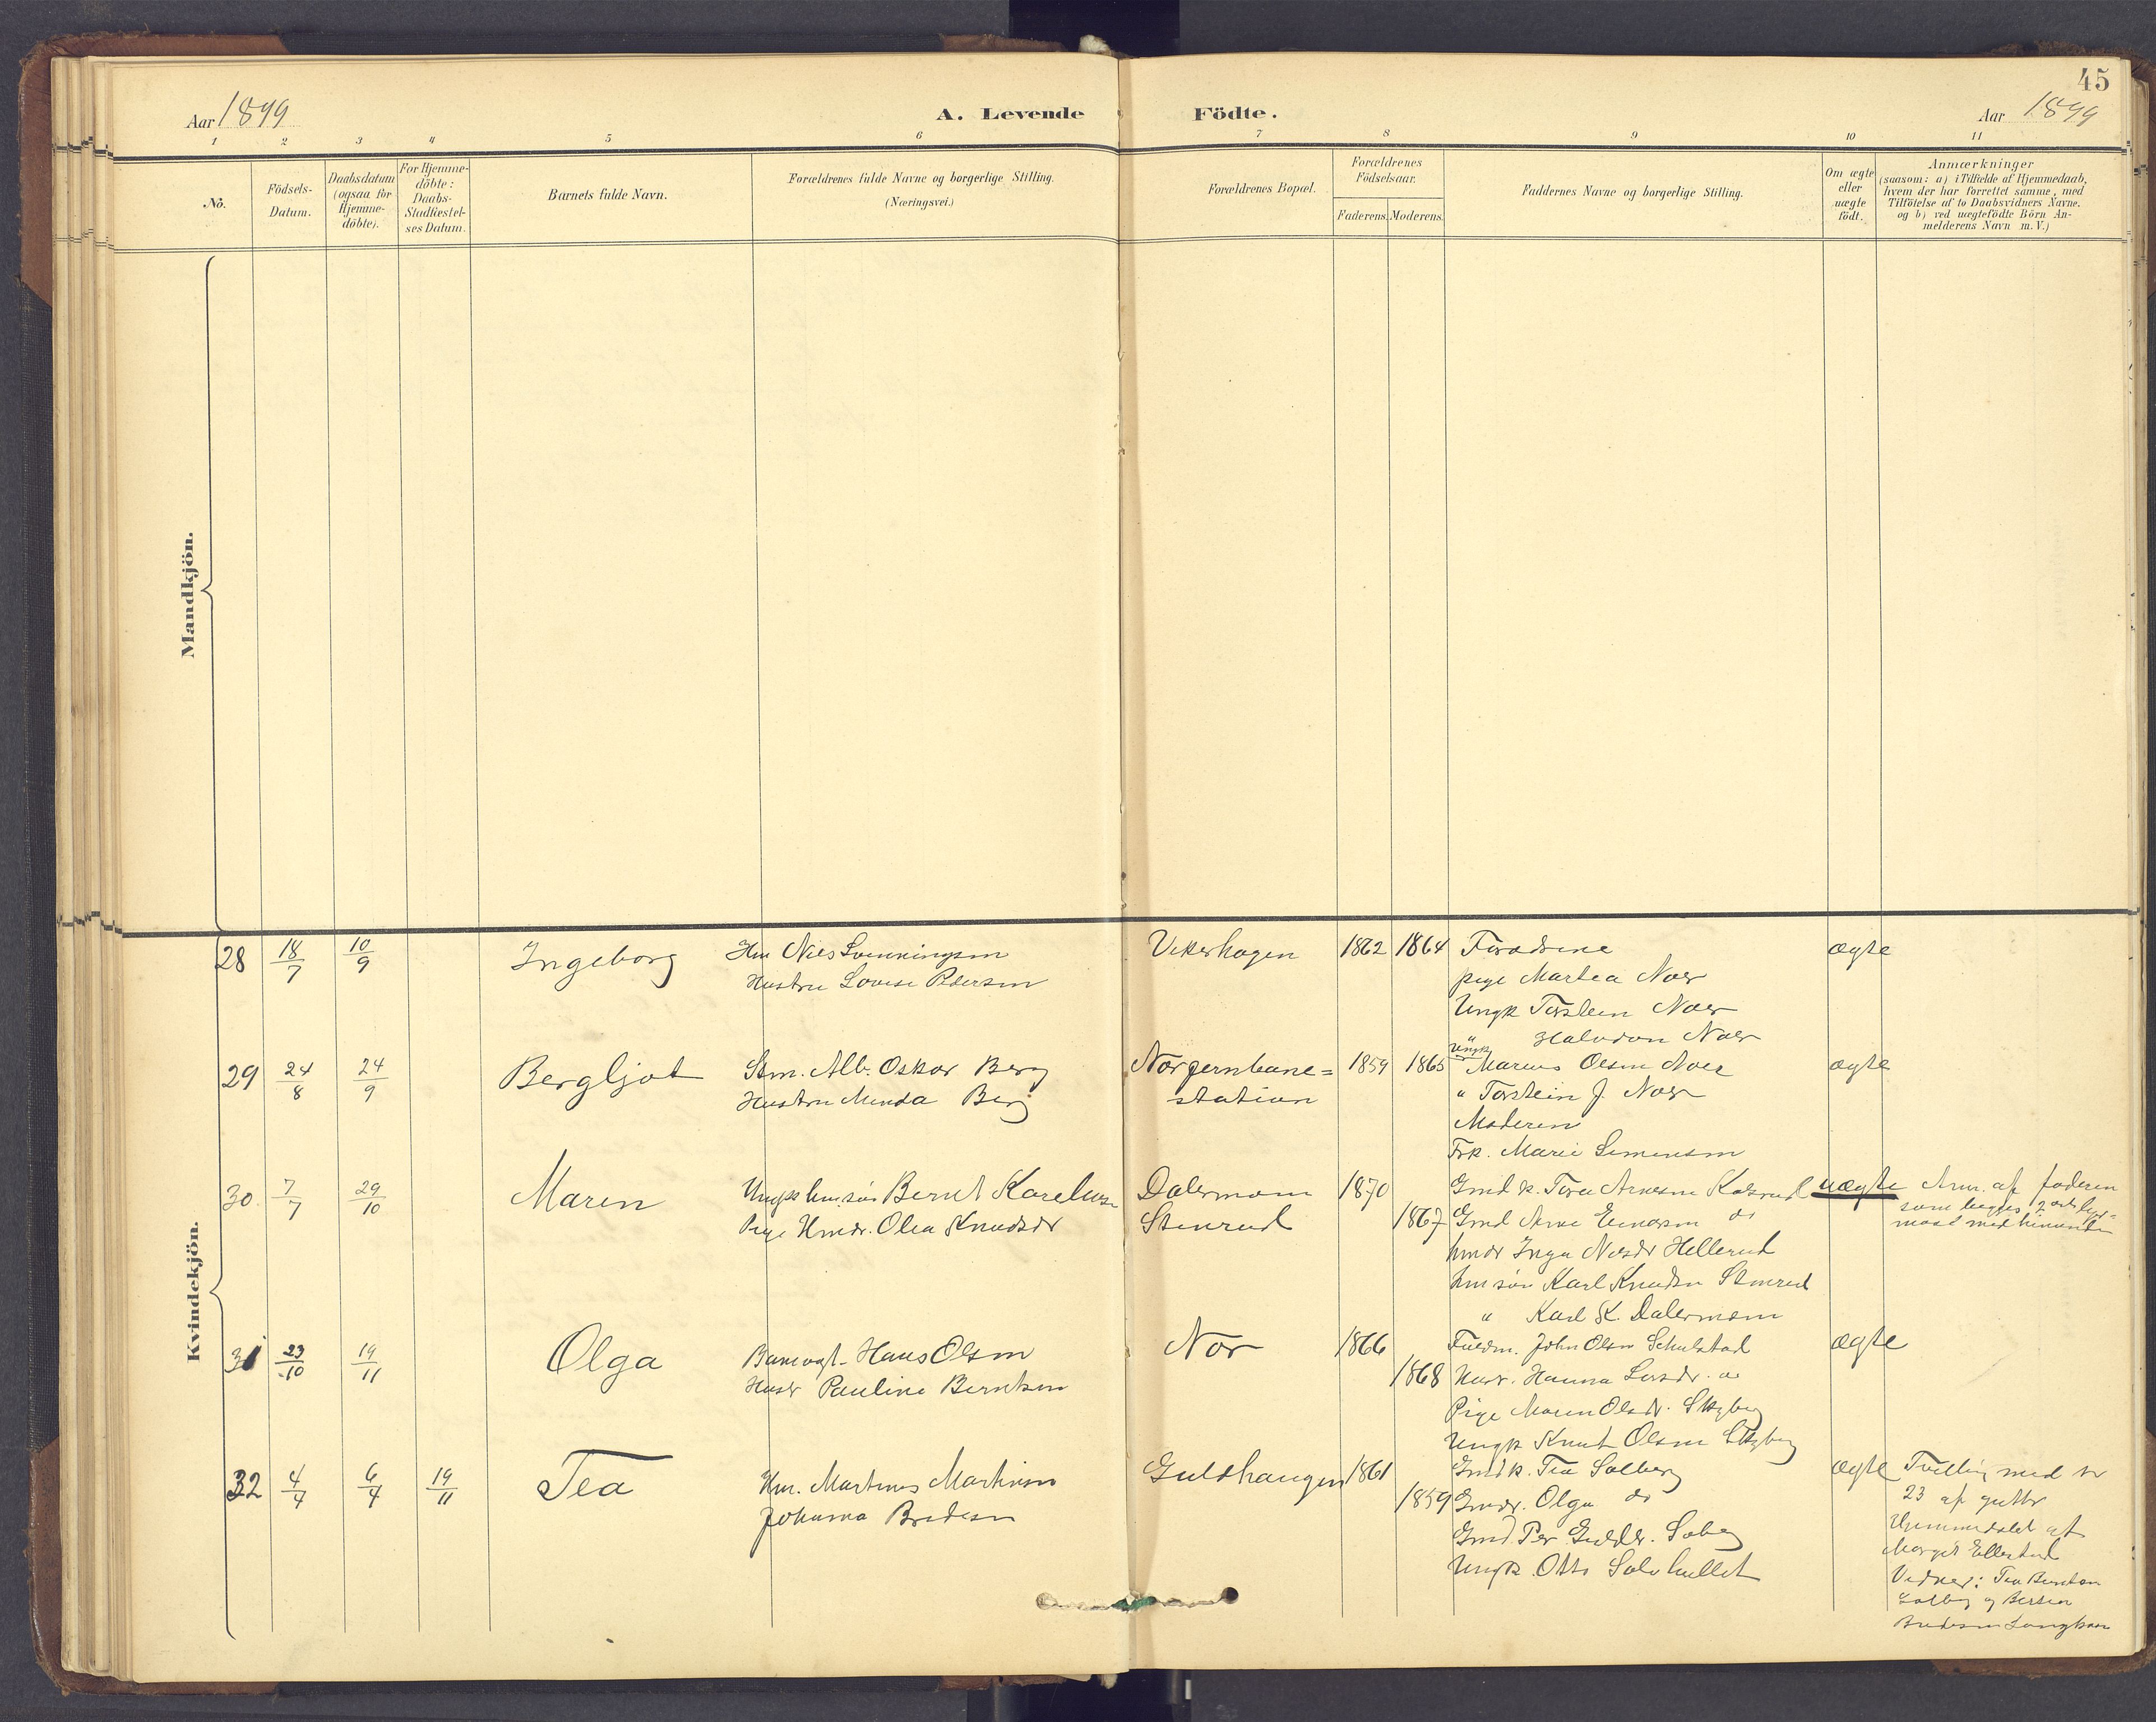 45
Aar 1899
A. Levende Födte.
Aar 1899
1 2 3 4 5 6 7 8 9 10 11
No.
Födsels-
Datum.
Daabsdatum
(ogsaa for
Hjemme-
döbte).
For Hjemme-
döbte:
Daabs-
Stadfæstel-
ses Datum.
Barnets fulde Navn.
Forældrenes fulde Navne og borgerlige Stilling.
(Næringsvei.)
Forældrenes Bopæl.
Forældrenes
Födselsaar.
Faderens. Moderens.
Faddernes Navne og borgerlige Stilling.
Om ægte
eller
uægte
födt.
Anmærkninger
(saasom: a) i Tilfælde af Hjemmedaab,
hvem der har forrettet samme, med
Tilföielse af to Daabsvidners Navne.
og b) ved uægtefödte Börn An-
melderens Navn m.V.)
Mandkjön.
Kvindekjön.
28 18/7 10/9 Ingeborg
Hm Nils Svenningsen
Hustru Lovise Pedersen
Vikerhagen 1862 1864
Forældrene
pige Martea Noer
Ungk Torstein Noer
" Halvdan Noer
ægte
29 24/8 24/9 Bergljot
Stm. Alb. Oskar Berg
Hustru Minda Berg
Nor jernbane=
station
1859 1865
Ungk Marius Olsen Noer
" Torstein J. Noer
Moderen
Frk. Marie Simensen
ægte
30. 7/7 29/10 Maren
Ungk hmsön Bernt Karelius
Pige Hmdr. Olea Knudsdr
Dalermoen
Stenrud
1870
1867
Gmd k. Arnesen
Gmd Arne do
hmdr Inga Nilsdr Hellerud
hmsön Karl Knudsen Stenrud
" Karl K. Dalermoen
uægte
Anm. af faderen
31 23/10 19/11 Olga
Banevogt Hans Olsen
Hustr Pauline Berntsen
Nor 1866
1868
John Olsen Schulstad
Hustr. Hanna Larsdr. do
Pige Maren Olsdr. Skyberg
Ungk Knut Olsen Skyberg
ægte
32 4/4 6/4 19/11 Tea
Hm. Martinus Martinsen
Johanna Bredesen
Guldhaugen 1861
1859
Gmdk. Tea Solberg
Gmdr. Olga do
Gmd Per Solberg
Ungk. Otto
ægte
Tvilling med nr
23 af gutter
Hjemmedöbt af
Margit Ellestad
Vidner: Tea Berntsen
Solberg og
Bredesen